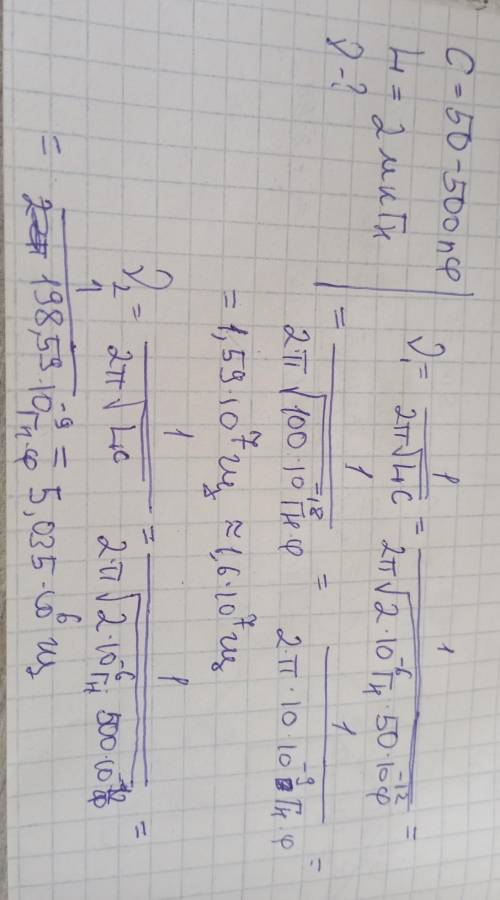 C = 50 - 500 пФ
L = 2 мкГн
ν - ?
ν₁ = 1/(2π√LC) = 1/(2π√(2·10⁻⁶ Гн · 50·10⁻¹² Ф)) =
= 1/(2π√(100·10⁻¹⁸ Гн·Ф)) = 1/(2·π·10·10⁻⁹ Гн·Ф) =
= 1,59·10⁷ Гц ≈ 1,6·10⁷ Гц
ν₂ = 1/(2π√LC) = 1/(2π√(2·10⁻⁶ Гн · 500·10⁻¹² Ф)) =
= 1/(198,59·10⁻⁹ Гн·Ф) = 5,035·10⁶ Гц